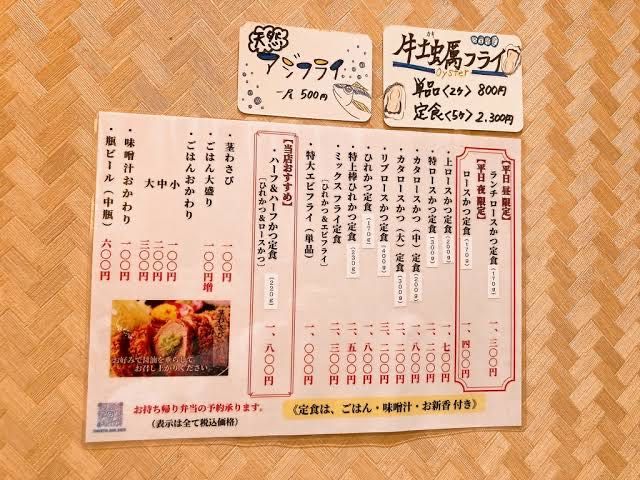 天然
アジフライ
500円
牡蠣フライ
Oyster
単品〈2ケ〉 800円
定食〈5ケ〉 2,300円
【平日 昼 限定】
ランチロースかつ定食(170g) 一、三〇〇円
【平日 夜 限定】
ロースかつ定食(170g) 一、四〇〇円
・上ロースかつ定食(200g) 一、七〇〇円
・特ロースかつ定食(300g)
・カタロースかつ(中)定食(200g) 一、八〇〇円
・カタロースかつ(大)定食(300g)
・リブロースかつ定食(400g)
・ひれかつ定食(170g)
・特上棒ひれかつ定食(230g) 二、五〇〇円
・ミックスフライ定食
[ひれかつ&エビフライ]
・特大エビフライ(単品) 一、〇〇〇円
【当店おすすめ】
・ハーフ&ハーフかつ定食(220g) 一、八〇〇円
[ひれかつ&ロースかつ]
・茎わさび 一〇〇円
・ごはん大盛り 一〇〇円増
・ごはんおかわり
小 一〇〇円
中 二〇〇円
大 三〇〇円
・味噌汁おかわり 一〇〇円
・瓶ビール(中瓶) 六〇〇円
お好みで醤油を垂らして
お召し上がりください
お持ち帰り弁当の予約承ります。
(表示は全て税込価格)
《定食は、ごはん・味噌汁・お新香 付き》